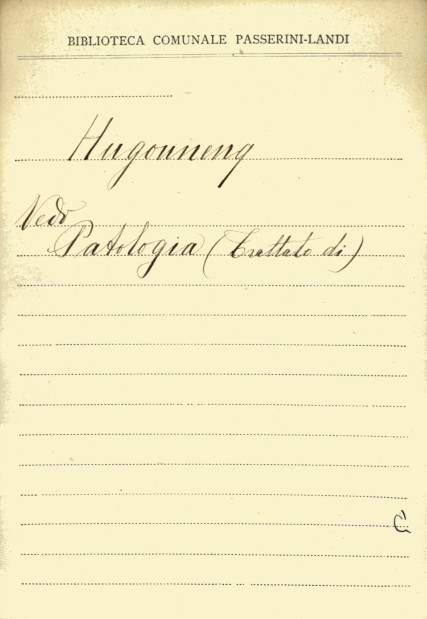 BIBLIOTECA COMUNALE PASSERINI-LANDI
Hugounenq
Vedo
Patologia (Trattato di)